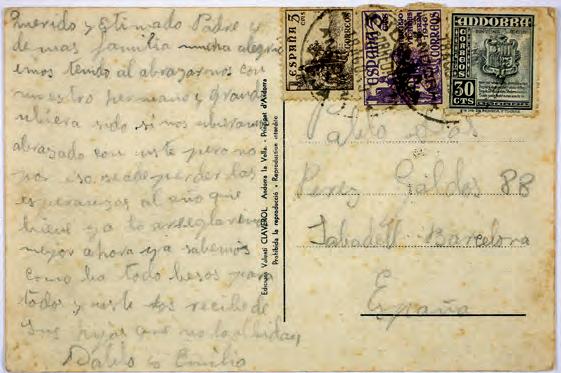 Querido y Estimado Padre y
de mas familia mucha alegria
emos tenido al abrazarnos con
nuestro hermano y
ubiera sido si nos ubieramos
abrazado con uste pero no
por eso se de perder las
esperanzas al año que
biene ya lo arreglaremos
mejor ahora ya sabemos
como ba todo besos para
todos y uste los recibe de
sus hijos que no lo olbidan
Pablo y Emilia
Edicions Valentí CLAVEROL. Andorra la Vella. - Principat d'Andorra
Prohibida la reproducció - Reproduction interdite
ESPAÑA
5 CTS
CORREOS
ESPAÑA
CORREOS
ANDORRA
CORREOS
30
CTS
Pablo
Perez Galdos 88
Sabadell Barcelona
España